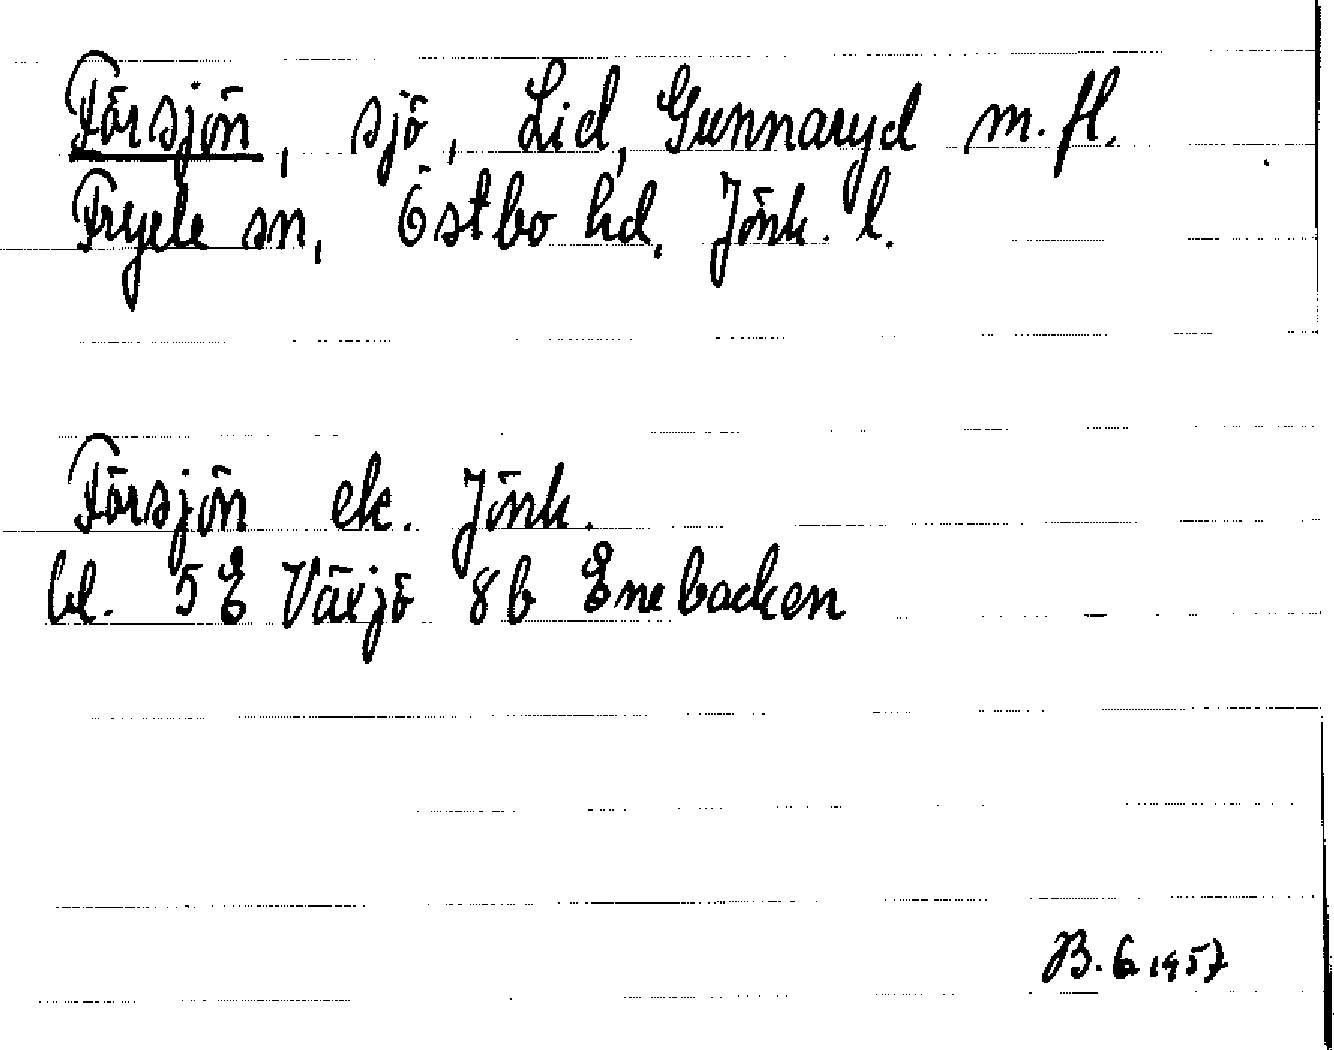 Försjön, sjö, Lid, Gunnaryd m. fl.
Fryele sn, Östbo hd. Jönk. l.
Försjön ek. Jönk.
bl. 5E Växjö 8b Enebacken
B. G 1957